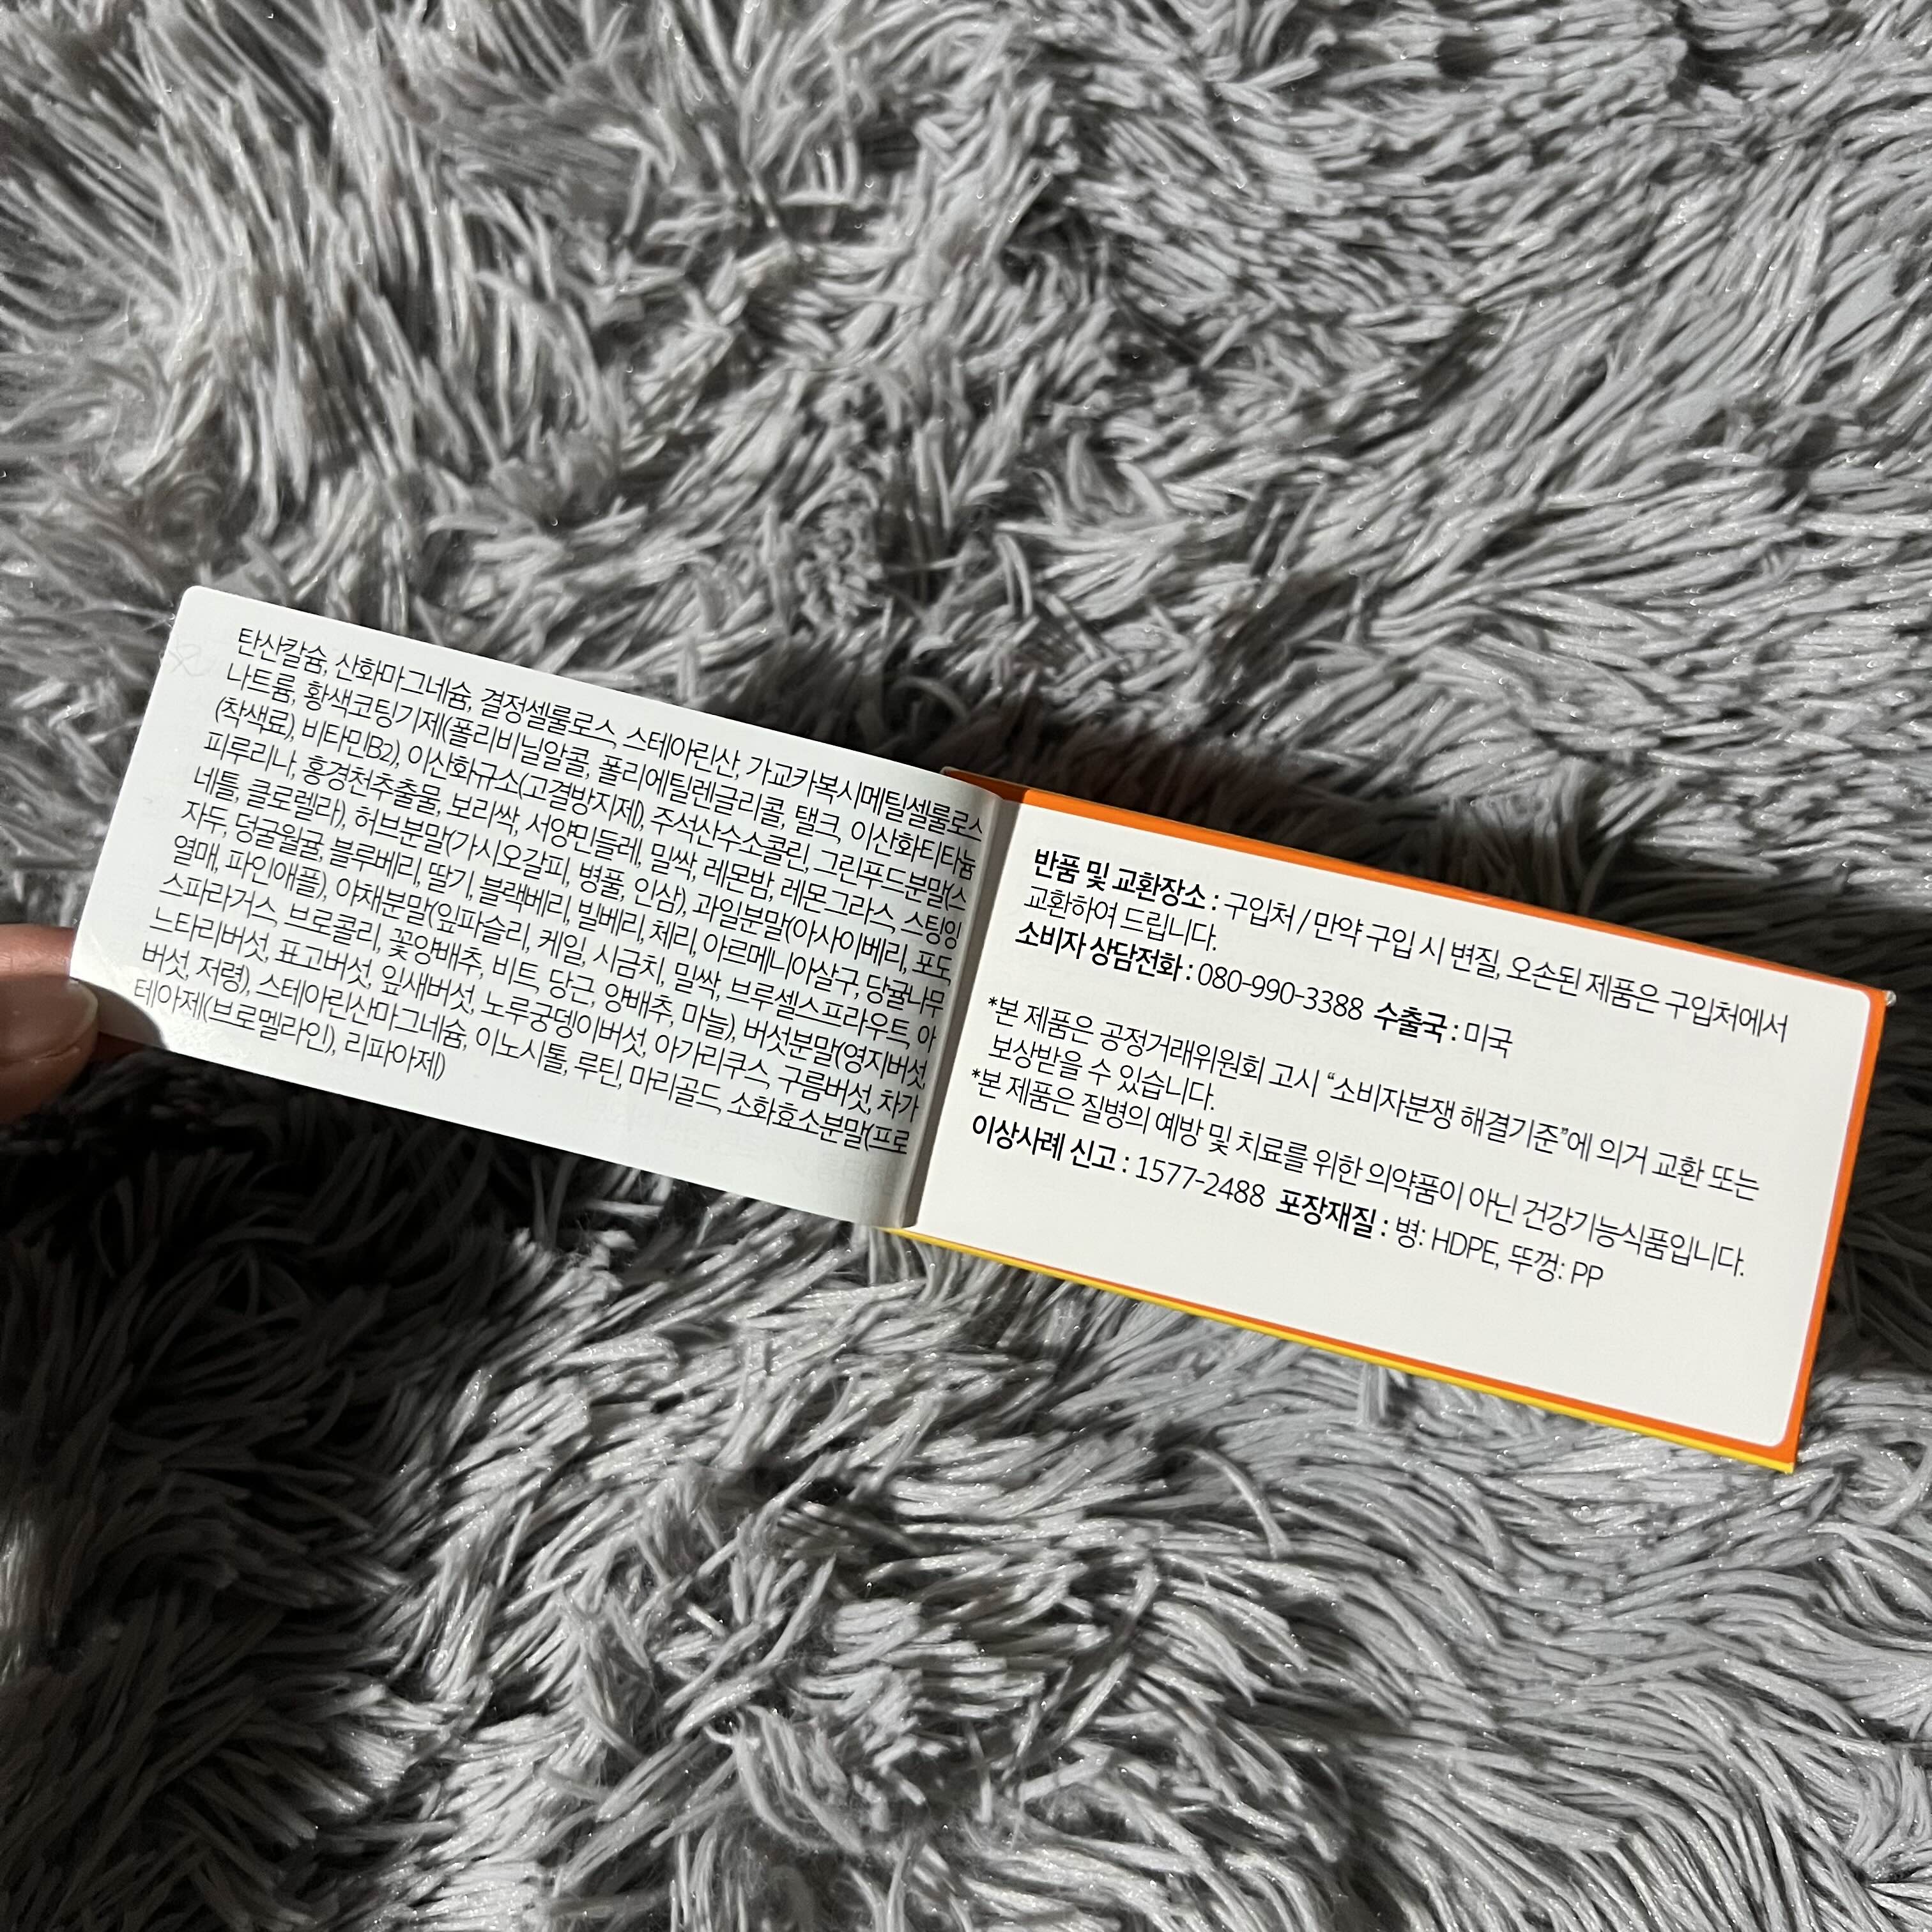 탄산칼슘, 산화마그네슘, 결정셀룰로스, 스테아린산, 가교카복시메틸셀룰로스
나트륨, 황색코팅기제(폴리비닐알콜, 폴리에틸렌글리콜, 탤크, 이산화티타늄
(착색료), 비타민B2), 이산화규소(고결방지제), 주석산수소콜린, 그린푸드분말(스
피루리나, 홍경천추출물, 보리싹, 서양민들레, 밀싹, 레몬밤, 레몬그라스, 스팅잉
네틀, 클로렐라), 허브분말(가시오갈피, 병풀, 인삼), 과일분말(아사이베리, 포도,
자두, 덩굴월귤, 블루베리, 딸기, 블랙베리, 빌베리, 체리, 아르메니아살구, 당귤나무
열매, 파인애플), 야채분말(잎파슬리, 케일, 시금치, 밀싹, 브루셀스프라우트, 아
스파라거스, 브로콜리, 꽃양배추, 비트, 당근, 양배추, 마늘), 버섯분말(영지버섯,
느타리버섯, 표고버섯, 잎새버섯, 노루궁뎅이버섯, 아가리쿠스, 구름버섯, 차가
버섯, 저령), 스테아린산마그네슘, 이노시톨, 루틴, 마리골드, 소화효소분말(프로
테아제(브로멜라인), 리파아제)
반품 및 교환장소 : 구입처 / 만약 구입 시 변질, 오손된 제품은 구입처에서
교환하여 드립니다.
소비자 상담전화 : 080-990-3388 수출국 : 미국
*본 제품은 공정거래위원회 고시 “소비자분쟁 해결기준”에 의거 교환 또는
보상받을 수 있습니다.
*본 제품은 질병의 예방 및 치료를 위한 의약품이 아닌 건강기능식품입니다.
이상사례 신고 : 1577-2488 포장재질 : 병: HDPE, 뚜껑: PP